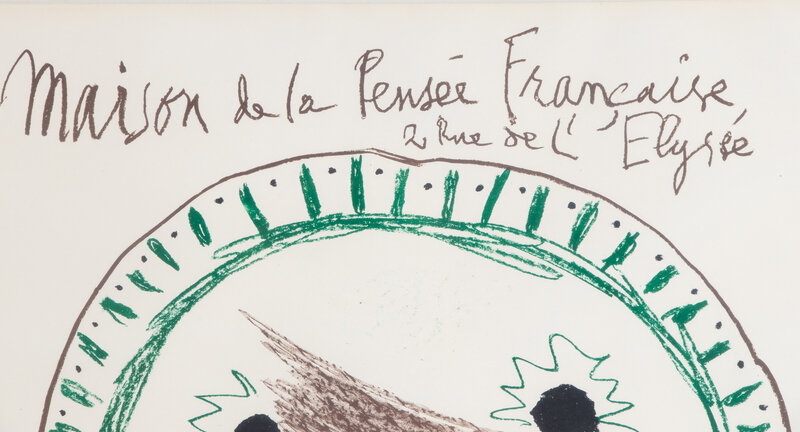 Maison de la Pensée Française,
2 Rue de L'Elysée